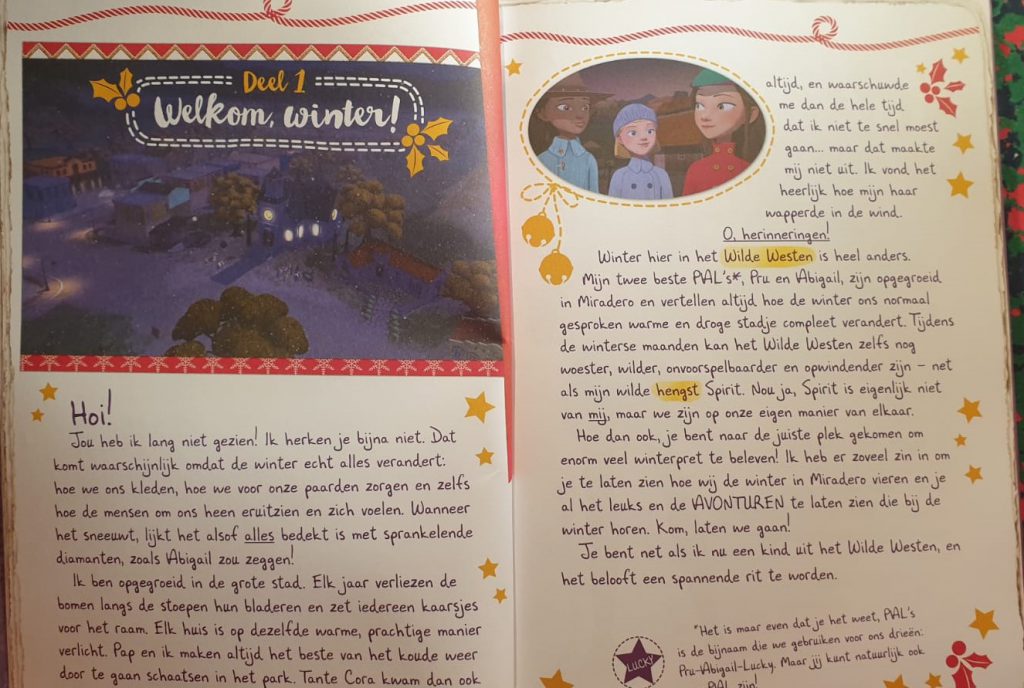 Deel 1
Welkom, winter!
Hoi!
Jou heb ik lang niet gezien! Ik herken je bijna niet. Dat
komt waarschijnlijk omdat de winter echt alles verandert:
hoe we ons kleden, hoe we voor onze paarden zorgen en zelfs
hoe de mensen om ons heen eruitzien en zich voelen. Wanneer
het sneeuwt, lijkt het alsof alles bedekt is met sprankelende
diamanten, zoals Abigail zou zeggen!
Ik ben opgegroeid in de grote stad. Elk jaar verliezen de
bomen langs de stoepen hun bladeren en zet iedereen kaarsjes
voor het raam. Elk huis is op dezelfde warme, prachtige manier
verlicht. Pap en ik maken altijd het beste van het koude weer
door te gaan schaatsen in het park. Tante Cora kwam dan ook
altijd, en waarschuwde
me dan de hele tijd
dat ik niet te snel moest
gaan... maar dat maakte
mij niet uit. Ik vond het
heerlijk hoe mijn haar
wapperde in de wind.
O, herinneringen!
Winter hier in het Wilde Westen is heel anders.
Mijn twee beste PAL's*, Pru en Abigail, zijn opgegroeid
in Miradero en vertellen altijd hoe de winter ons normaal
gesproken warme en droge stadje compleet verandert. Tijdens
de winterse maanden kan het Wilde Westen zelfs nog
woester, wilder, onvoorspelbaarder en opwindender zijn – net
als mijn wilde hengst Spirit. Nou ja, Spirit is eigenlijk niet
van mij, maar we zijn op onze eigen manier van elkaar.
Hoe dan ook, je bent naar de juiste plek gekomen om
enorm veel winterpret te beleven! Ik heb er zoveel zin in om
je te laten zien hoe wij de winter in Miradero vieren en je
al het leuks en de AVONTUREN te laten zien die bij de
winter horen. Kom, laten we gaan!
Je bent net als ik nu een kind uit het Wilde Westen, en
het belooft een spannende rit te worden.
LUCKY
*Het is maar even dat je het weet, PAL's
is de bijnaam die we gebruiken voor ons drieën:
Pru-Abigail-Lucky. Maar jij kunt natuurlijk ook
PAL zijn!